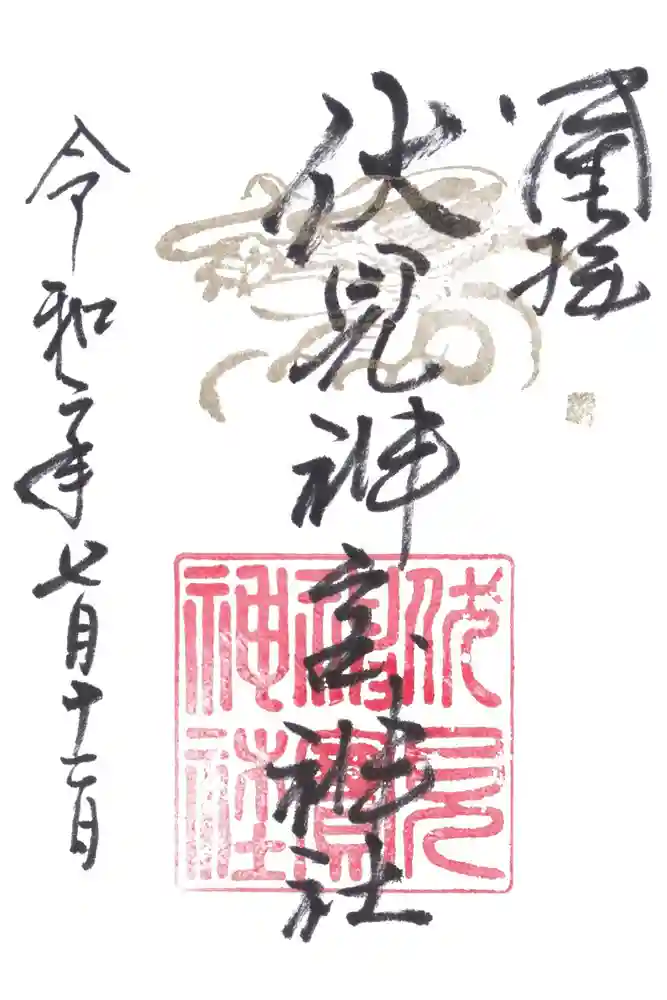 拝
伏見神宝神社
令和二年七月十二日
伏見
神寶
神社